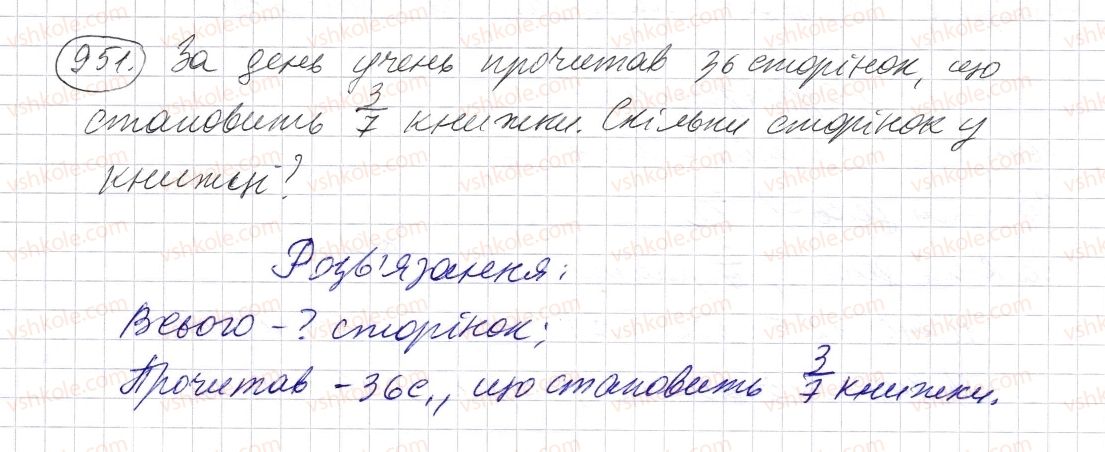 951. За день учень прочитав 36 сторінок, що
становить 3/7 книжки. Скільки сторінок у
книжці?
Розв'язання:
Всього - ? сторінок;
Прочитав - 36 с., що становить 3/7 книжки.